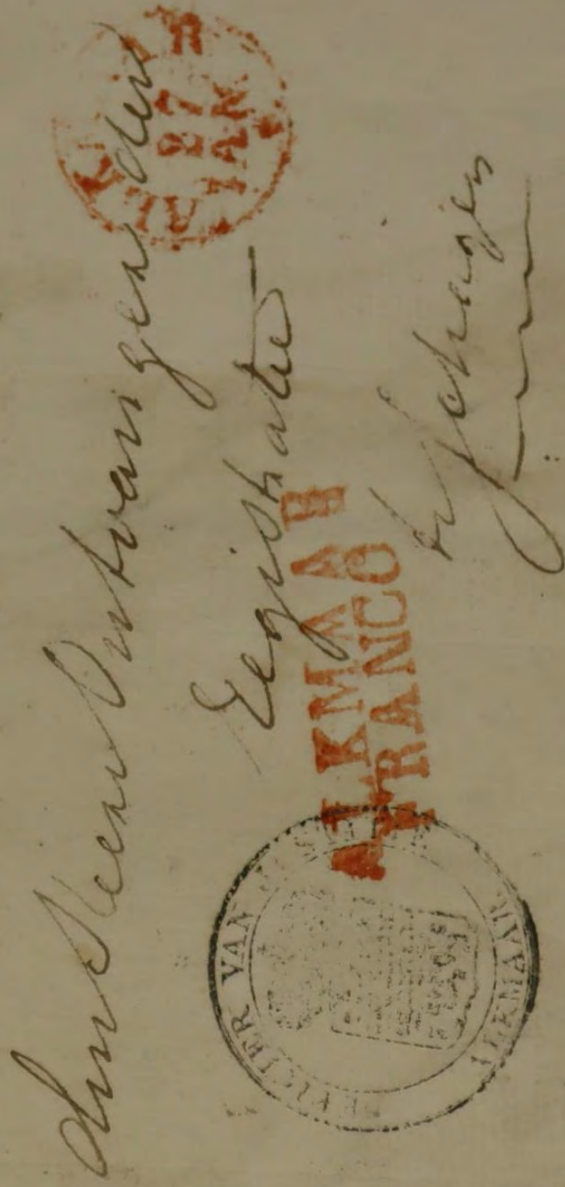 den Heer Ontvanger der
Registratie
te Schagen
ALKMAAR
FRANCO
27
JAN
OFFICIER VAN
ALKMAAR